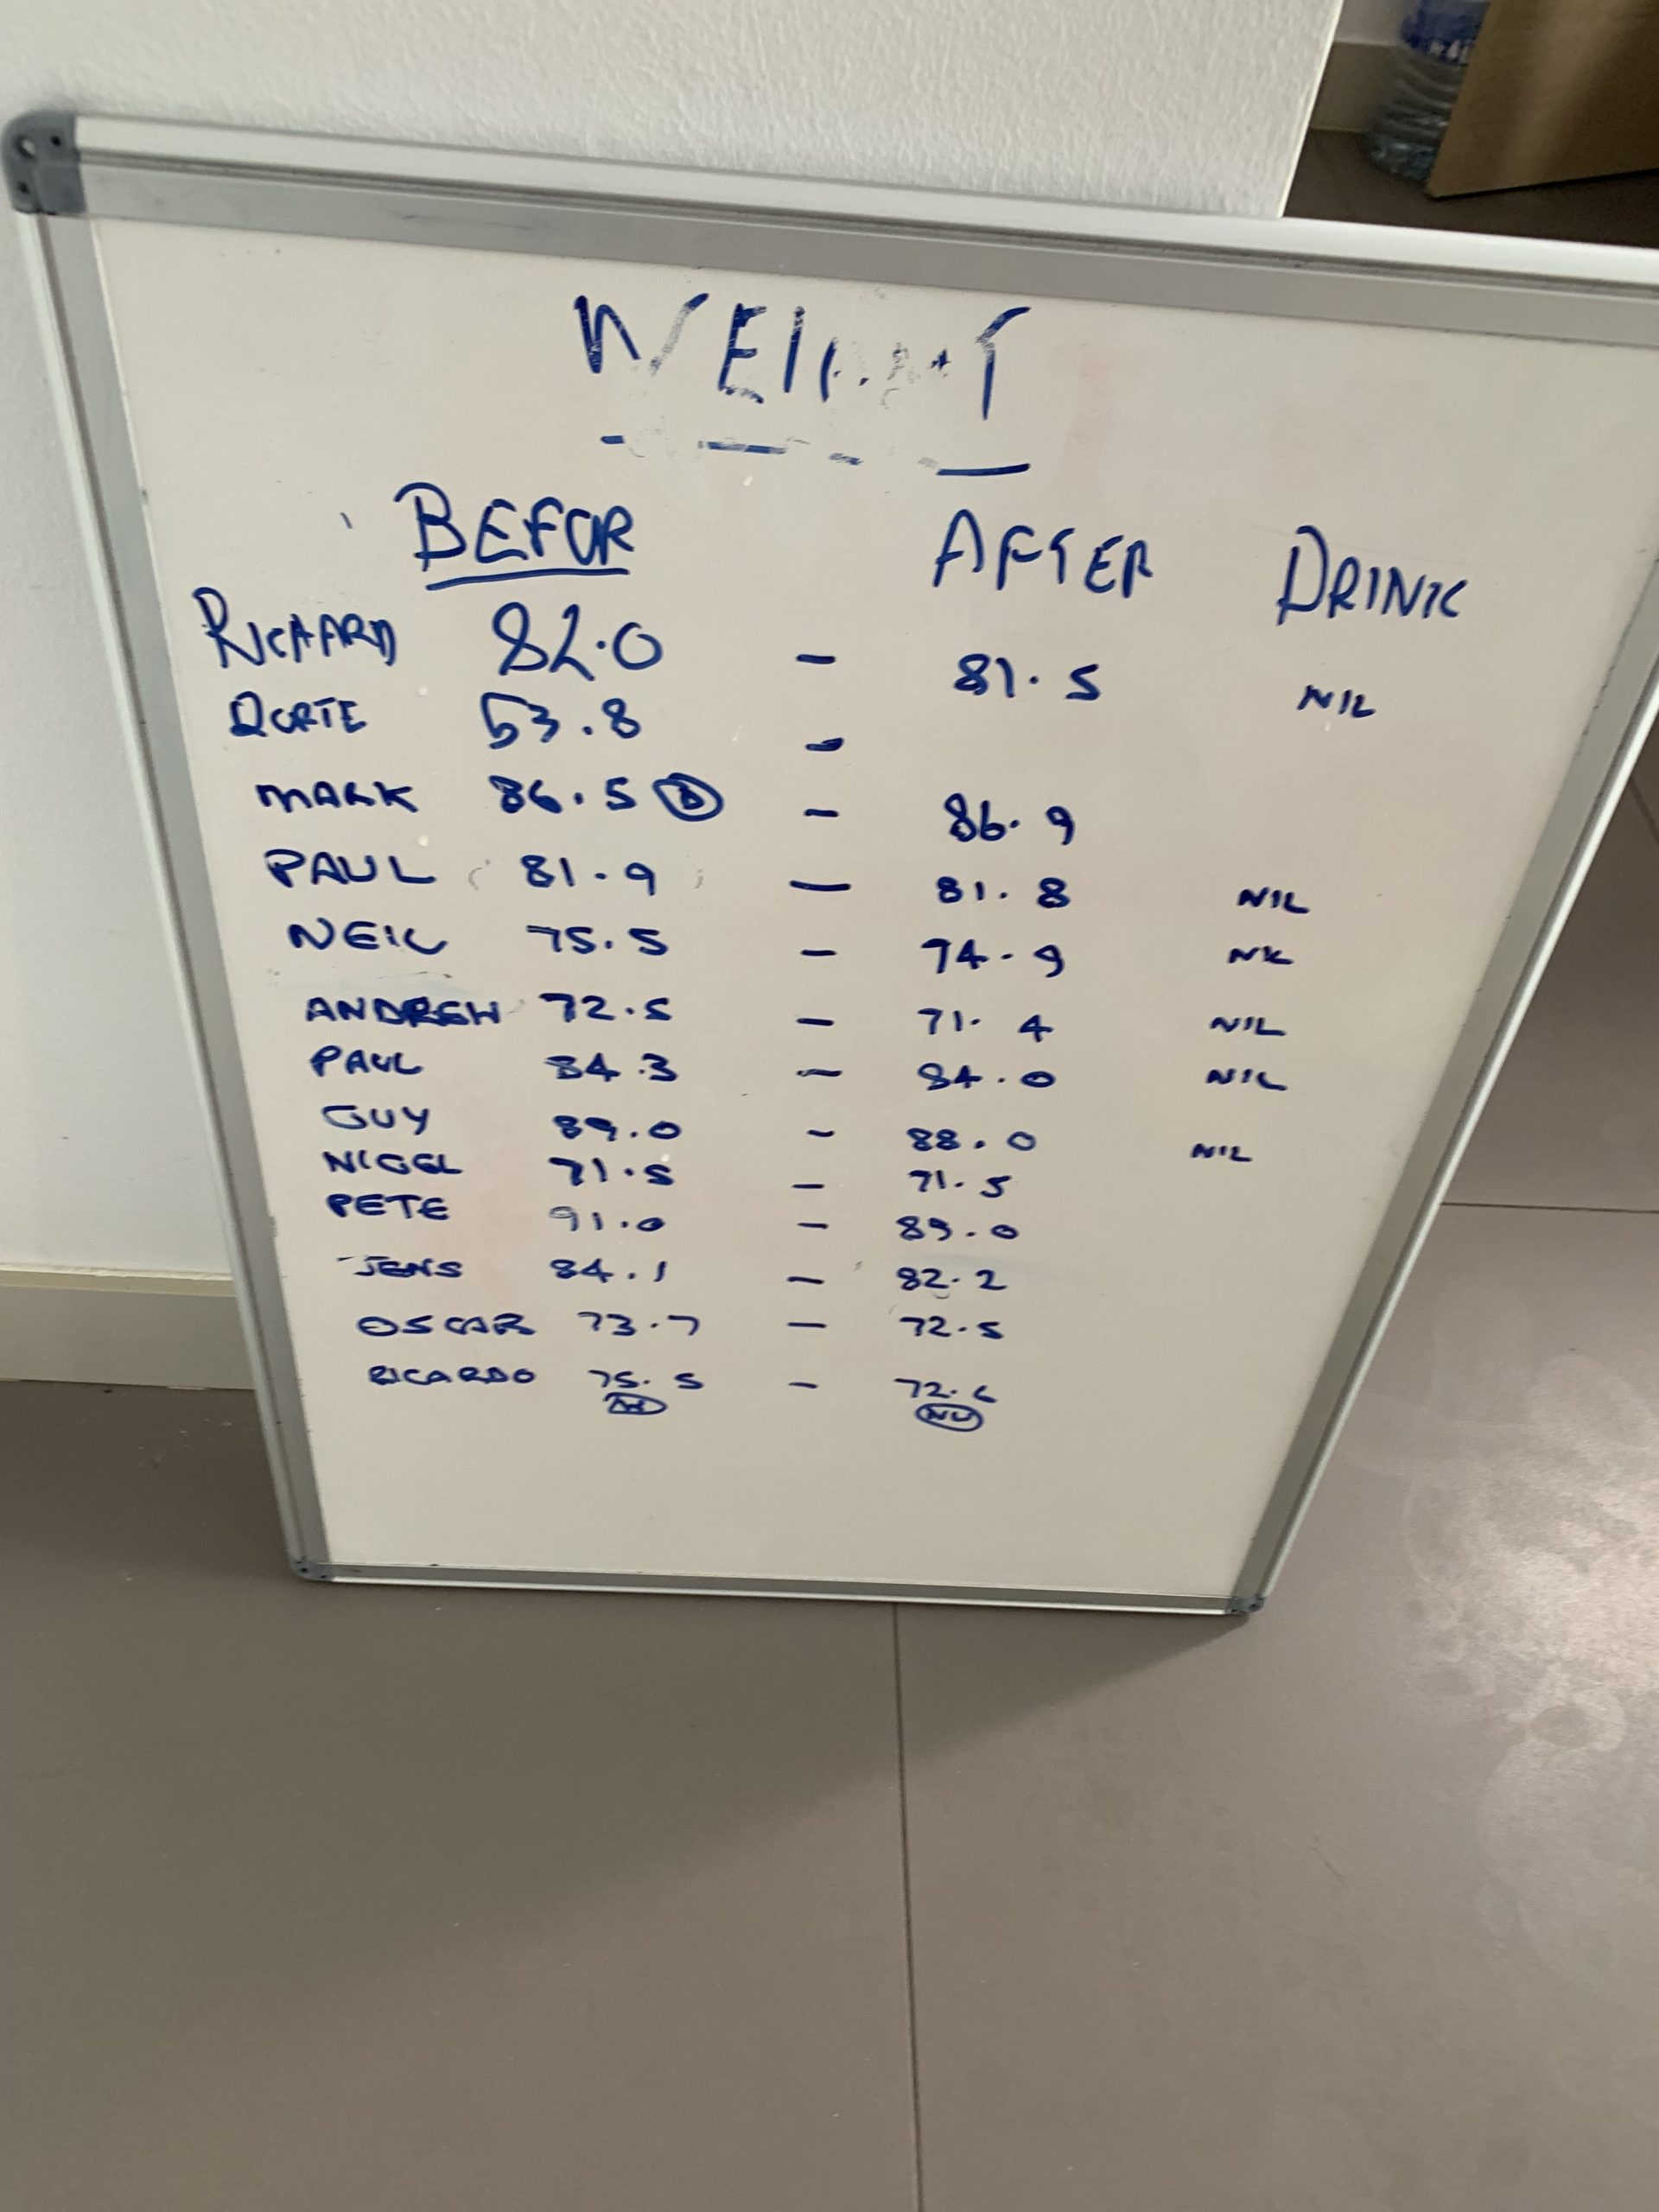 WEIGHT
BEFOR - AFTER DRINK
RICHARD 82.0 - 81.5 NIL
DORTE 53.8 -
MARK 86.5 - 86.9
PAUL 81.9 - 81.8 NIL
NEIL 75.5 - 74.9 NIL
ANDREW 72.5 - 71.4 NIL
PAUL 84.3 - 84.0 NIL
GUY 89.0 - 88.0 NIL
NIGEL 71.5 - 71.5
PETE 91.0 - 89.0
JENS 84.1 - 82.2
OSCAR 73.7 - 72.5
RICARDO 75.5 - 72.6